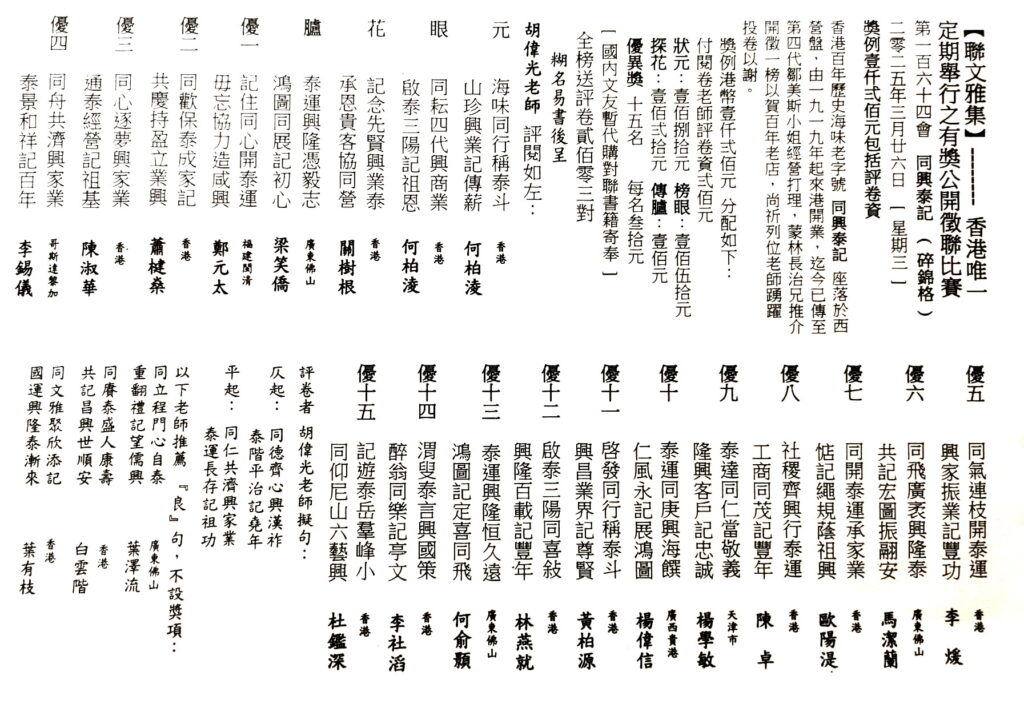 【聯文雅集】-------- 香港唯一
定期舉行之有獎公開徵聯比賽
第一百六十四會 同興泰記 (碎錦格)
二零二五年三月廿六日 [星期三]
獎例壹仟弍佰元包括評卷資
香港百年歷史海味老字號 同興泰記 座落於西
營盤,由一九一九年起來港開業,迄今已傳至
第四代鄒美斯小姐經營打理,蒙林長治兄推介
開徵一榜以賀百年老店,尚祈列位老師踴躍
投卷以謝。
獎例港幣壹仟弍佰元 分配如下:
付閱卷老師評卷資弍佰元
狀元:壹佰捌拾元 榜眼:壹佰伍拾元
探花:壹佰弍拾元 傳臚:壹佰元
優異獎 十五名 每名叁拾元
[國內文友暫代購對聯書籍寄奉]
全榜送評卷貳佰零三對
糊名易書後呈
胡偉光老師 評閱如左:
元 海味同行稱泰斗 香港
山珍興業記傳薪 何柏淩
眼 同耘四代興商業 香港
啟泰三陽記祖恩 何柏淩
花 記念先賢興業泰 香港
承恩貴客協同營 關樹根
臚 泰運興隆憑毅志 廣東佛山
鴻圖同展記初心 梁笑僑
優一 記住同心開泰運 福建閩清
毋忘協力造咸興 鄭元太
優二 同歡保泰成家記 香港
共慶持盈立業興 蕭楗燊
優三 同心逐夢興家業 香港
通泰經營記祖基 陳淑華
優四 同舟共濟興家業 哥斯達黎加
泰景和祥記百年 李錫儀
優五 同氣連枝開泰運 香港
興家振業記豐功 李 煖
優六 同飛廣袤興隆泰 廣東佛山
共記宏圖振翮安 馬潔蘭
優七 同開泰運承家業 香港
惦記繩規蔭祖興 歐陽湜
優八 社稷齊興行泰運 香港
工商同茂記豐年 陳 卓
優九 泰達同仁當敬義 天津市
隆興客戶記忠誠 楊學敏
優十 泰運同庚興海饌 廣西貴港
仁風永記展鴻圖 楊偉信
優十一 啓發同行稱泰斗 香港
興昌業界記尊賢 黃柏源
優十二 啟泰三陽同喜敍 香港
興隆百載記豐年 林燕就
優十三 泰運興隆恒久遠 廣東佛山
鴻圖記定喜同飛 何俞顥
優十四 渭叟泰言興國策 香港
醉翁同樂記亭文 李社滔
優十五 記遊泰岳羣峰小 香港
同仰尼山六藝興 杜鑑深
評卷者 胡偉光老師擬句:
仄起: 同德齊心興漢祚
泰階平治記堯年
平起: 同仁共濟興家業
泰運長存記祖功
以下老師推薦『良』句,不設獎項:
同立程門心自泰 廣東佛山
重翻禮記望儒興 葉澤流
同賡泰盛人康壽 香港
共記昌興世順安 白雲階
同文雅聚欣添記 香港
國運興隆泰漸來 葉有枝